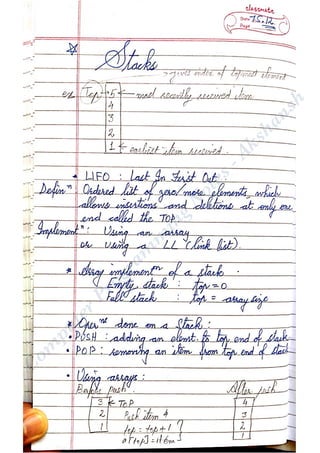 classmate
Date 15.12
Page
Stacks
→ gives index of topmost element
ex Top → 5 ← most recently received item
4
3
2
1 ← earliest item received.
• LIFO : Last In First Out :
Definⁿ : Ordered list of zero/more elements which
allows insertions and deletions at only one
end called the TOP.
Implementⁿ : Using an array
or Using a LL (link list)
* Array implementⁿ of a stack.
Empty stack : top = 0
Full stack : top = array size
* Operⁿˢ done on a Stack :
• PUSH : adding an element to top end of stack
• POP : removing an item from top end of stack
• Using arrays :
Before push After push
3 ← TOP 4
2 Push item 4 3
1 top = top + 1 2
a[top] = item 1